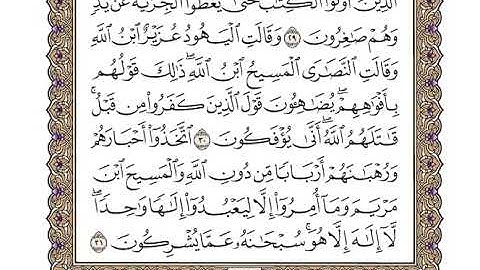 الَّذِينَ أُوتُوا الْكِتَٰبَ حَتَّىٰ يُعْطُوا الْجِزْيَةَ عَن يَدٍ
وَهُمْ صَٰغِرُونَ ٢٩ وَقَالَتِ الْيَهُودُ عُزَيْرٌ ابْنُ اللَّهِ
وَقَالَتِ النَّصَٰرَى الْمَسِيحُ ابْنُ اللَّهِ ۖ ذَٰلِكَ قَوْلُهُم
بِأَفْوَٰهِهِمْ ۖ يُضَٰهِـُٔونَ قَوْلَ الَّذِينَ كَفَرُوا مِن قَبْلُ ۚ
قَٰتَلَهُمُ اللَّهُ ۚ أَنَّىٰ يُؤْفَكُونَ ٣٠ اتَّخَذُوٓا أَحْبَارَهُمْ
وَرُهْبَٰنَهُمْ أَرْبَابًا مِّن دُونِ اللَّهِ وَالْمَسِيحَ ابْنَ
مَرْيَمَ وَمَآ أُمِرُوٓا إِلَّا لِيَعْبُدُوٓا إِلَٰهًا وَٰحِدًا ۖ
لَّآ إِلَٰهَ إِلَّا هُوَ ۚ سُبْحَٰنَهُۥ عَمَّا يُشْرِكُونَ ٣١